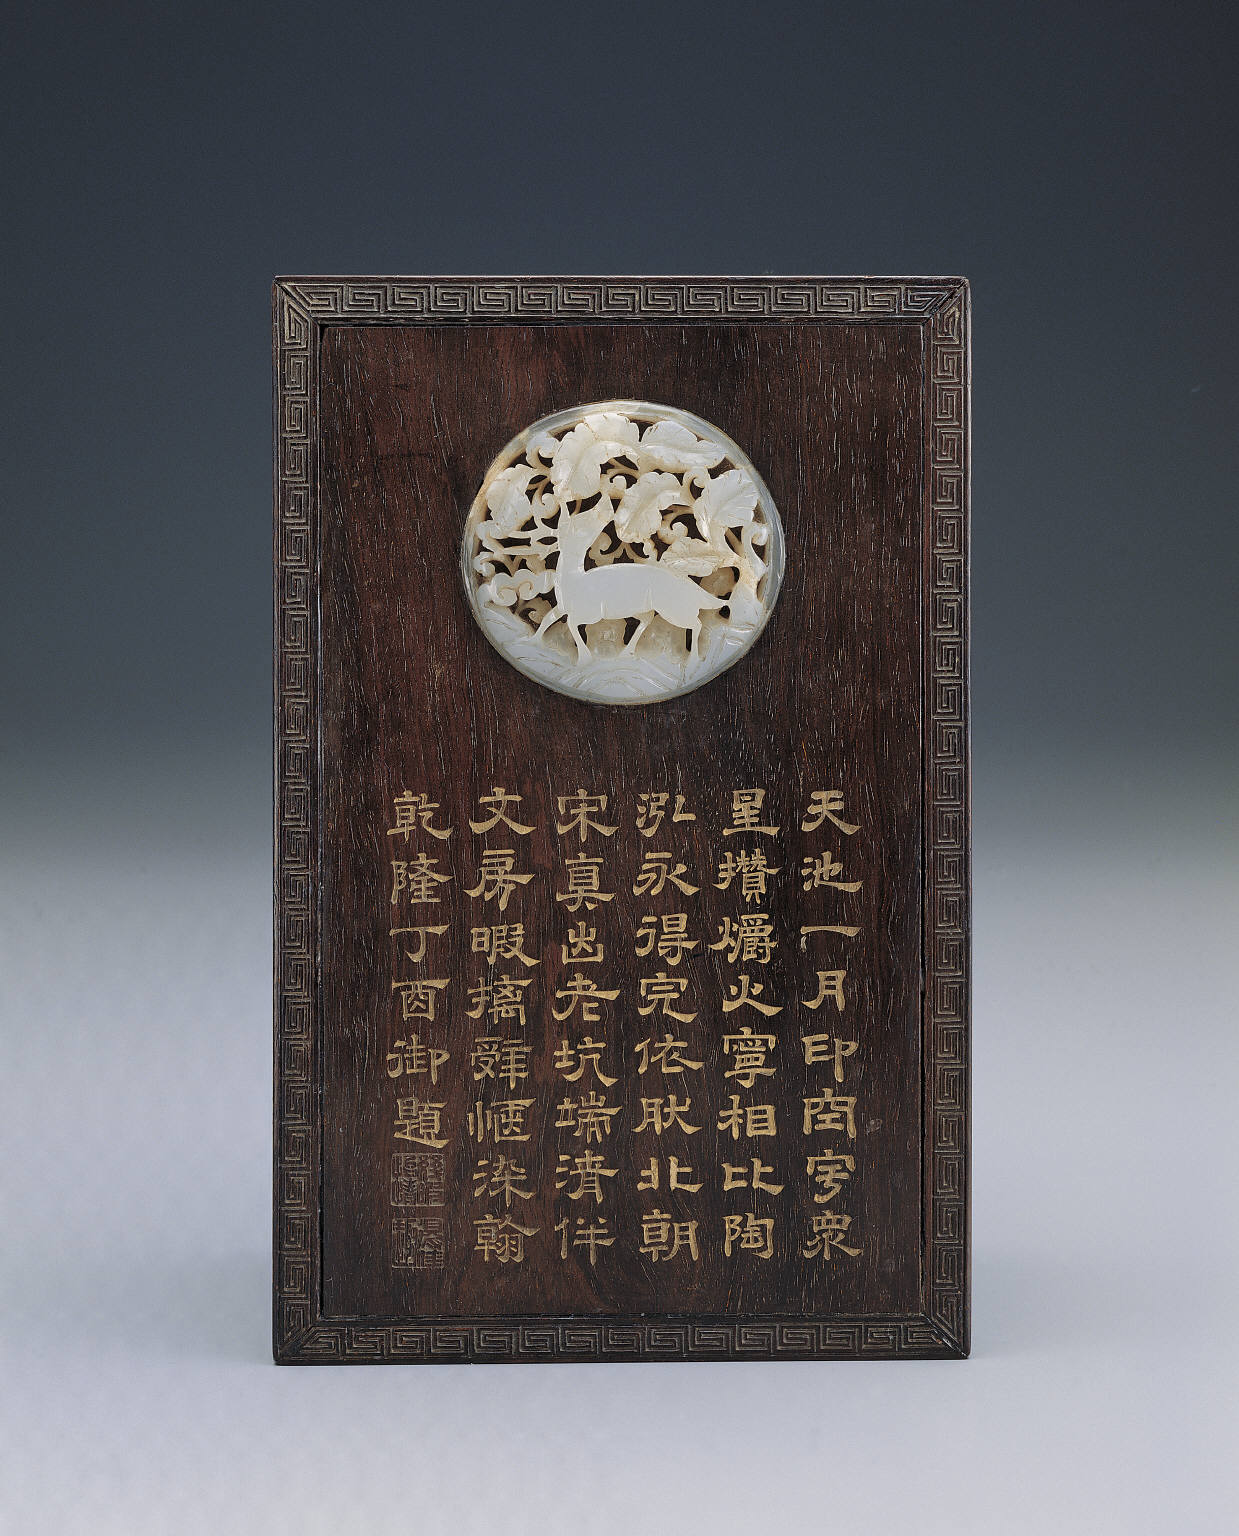 天池一月印空宇衆
星攢爝火寧相比陶
泓永得完依肰北朝
宋真出老坑端清伴
文房暇摛辭愜染翰
乾隆丁酉御題